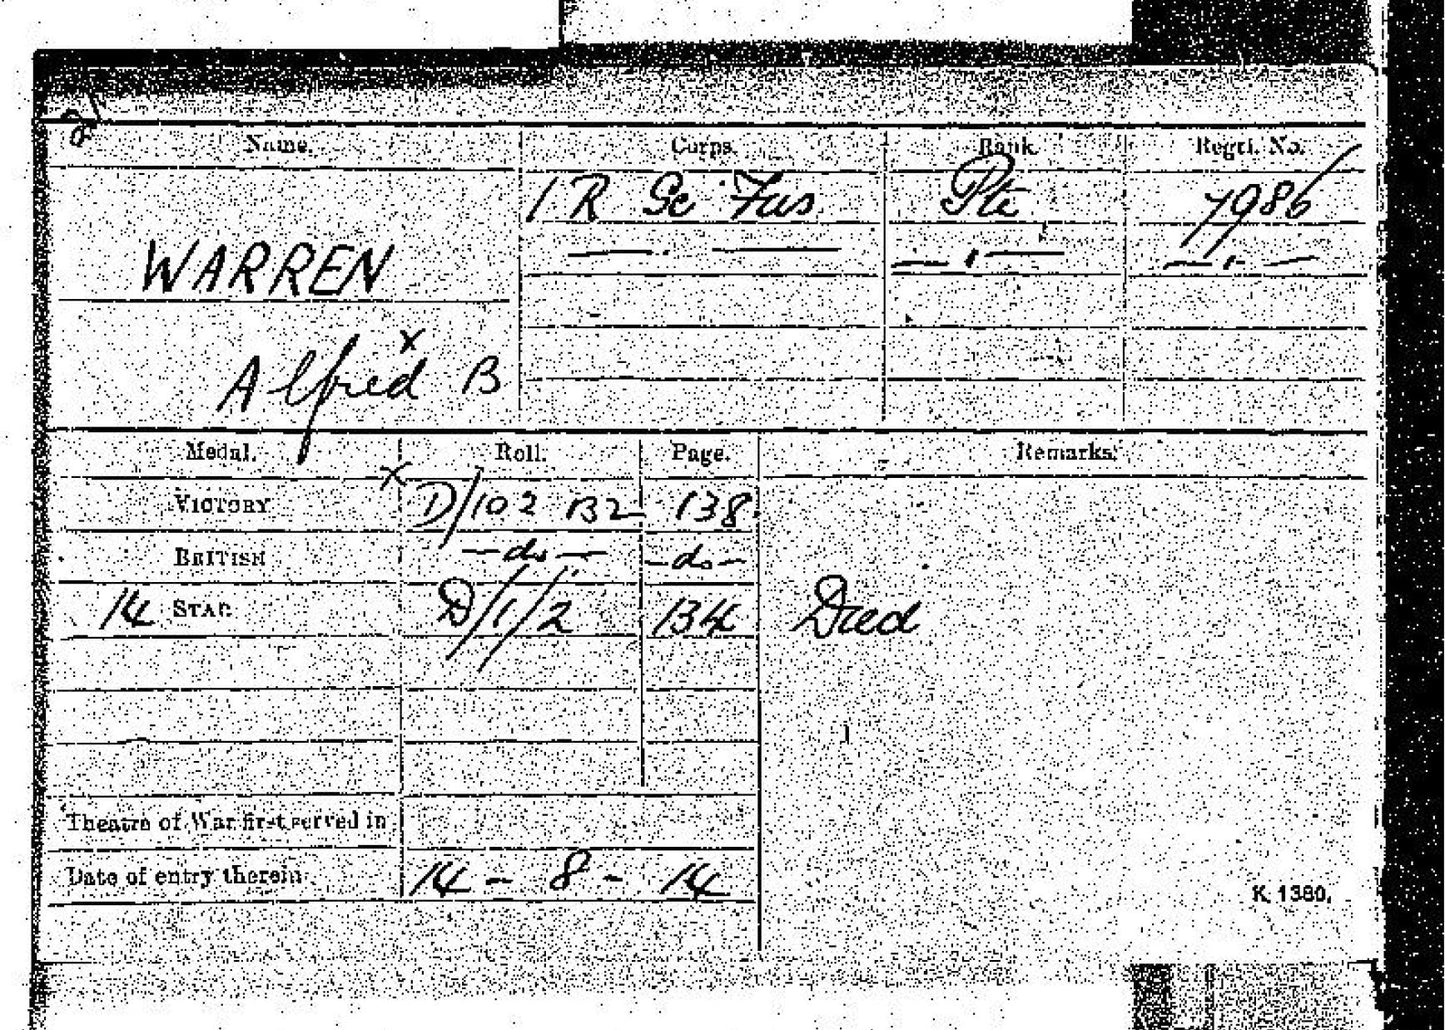 Name. Corps. Rank. Regtl. No.
1 R Sc Fus Pte 7986
WARREN
x
Alfred B
Medal. Roll. Page. Remarks.
x
VICTORY D/102 B2 138
BRITISH —do— —do—
14 STAR D/1/2 134 Died
Theatre of War first served in
Date of entry therein 14 - 8 - 14
K. 1380.